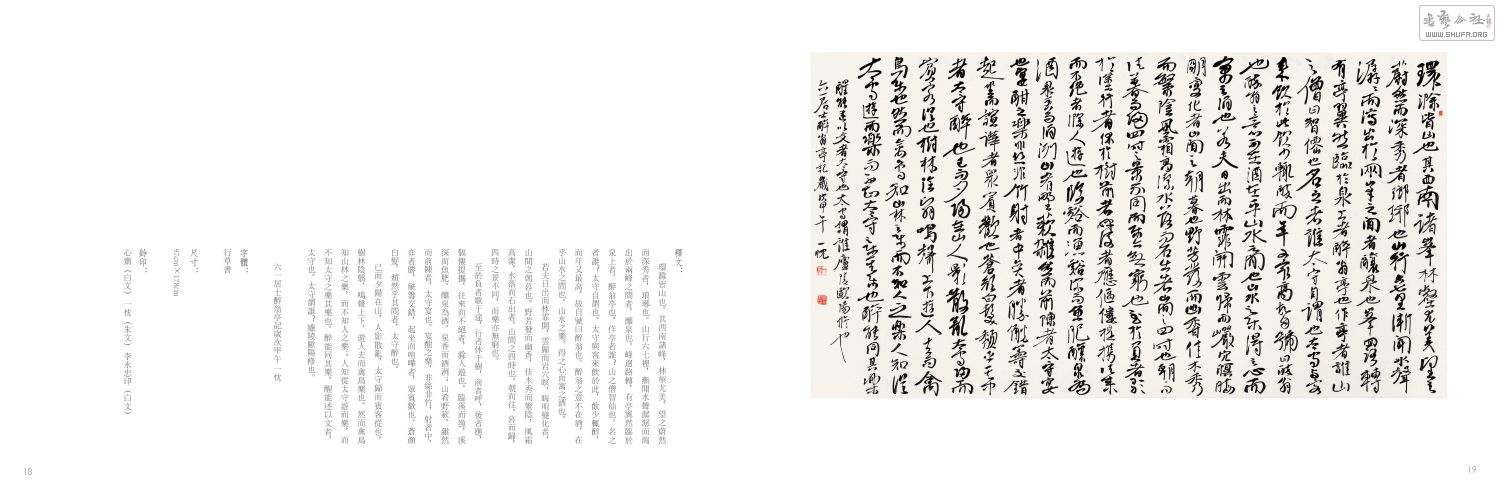 釋文：
環滁皆山也。其西南諸峰，林壑尤美，望之蔚然
而深秀者，琅琊也。山行六七里，漸聞水聲潺潺而瀉
出於兩峰之間者，釀泉也。峰迴路轉，有亭翼然臨於
泉上者，醉翁亭也。作亭者誰？山之僧智仙也。名之
者誰？太守自謂也。太守與客來飲於此，飲少輒醉，
而年又最高，故自號曰醉翁也。醉翁之意不在酒，在
乎山水之間也。山水之樂，得之心而寓之酒也。
若夫日出而林霏開，雲歸而岩穴暝，晦明變化者，
山間之朝暮也。野芳發而幽香，佳木秀而繁陰，風霜
高潔，水落而石出者，山間之四時也。朝而往，暮而歸，
四時之景不同，而樂亦無窮也。
至於負者歌于途，行者休于樹，前者呼，後者應，
傴僂提攜，往來而不絕者，滁人遊也。臨溪而漁，溪
深而魚肥，釀泉為酒，泉香而酒洌；山肴野蔌，雜然
而前陳者，太守宴也。宴酣之樂，非絲非竹，射者中，
弈者勝，觥籌交錯，起坐而喧嘩者，眾賓歡也。蒼顏
白髮，頹然乎其間者，太守醉也。
已而夕陽在山，人影散亂，太守歸而賓客從也。
樹林陰翳，鳴聲上下，遊人去而禽鳥樂也。然而禽鳥
知山林之樂，而不知人之樂；人知從太守游而樂，而
不知太守之樂其樂也。醉能同其樂，醒能述以文者，
太守也。太守謂誰？廬陵歐陽修也。
六一居士醉翁亭記歲次甲午 一忱
字體：
行草書
尺寸：
97cm×178cm
鈐印：
心齋（白文）一忱（朱文）李永忠印（白文）
18
環滁皆山也其西南諸峯林壑尤美望之
蔚然而深秀者瑯琊也山行六七里漸聞水聲
潺潺而瀉出於兩峯之間者釀泉也峯回路轉
有亭翼然臨於泉上者醉翁亭也作亭者誰山
之僧曰智僊也名之者誰太守自謂也太守與客
來飲於此飲少輒醉而年又最高故自號曰醉翁
也醉翁之意不在酒在乎山水之間也山水之樂得之心而
寓之酒也若夫日出而林霏開雲歸而巖穴暝晦
明變化者山間之朝暮也野芳發而幽香佳木秀
而繁陰風霜高潔水落而石出者山間之四時也朝而
往暮而歸四時之景不同而樂亦無窮也至於負者歌
於塗行者休於樹前者呼後者應傴僂提攜往來
而不絕者滁人遊也臨谿而漁谿深而魚肥釀泉為
酒泉香而酒洌山肴野蔌雜然而前陳者太守宴
也宴酣之樂非絲非竹射者中奕者勝觥籌交錯
起坐而諠譁者眾賓歡也蒼顏白髮頹乎其中
者太守醉也已而夕陽在山人影散亂太守歸而
賓客從也樹林陰翳鳴聲上下遊人去而禽
鳥樂也然而禽鳥知山林之樂而不知人之樂人知從
太守遊而樂而不知太守之樂其樂也醉能同其樂
醒能述以文者太守也太守謂誰廬陵歐陽修也
六一居士醉翁亭記歲次甲午 一忱
書藝公社
WWW.SHUFA.ORG
19